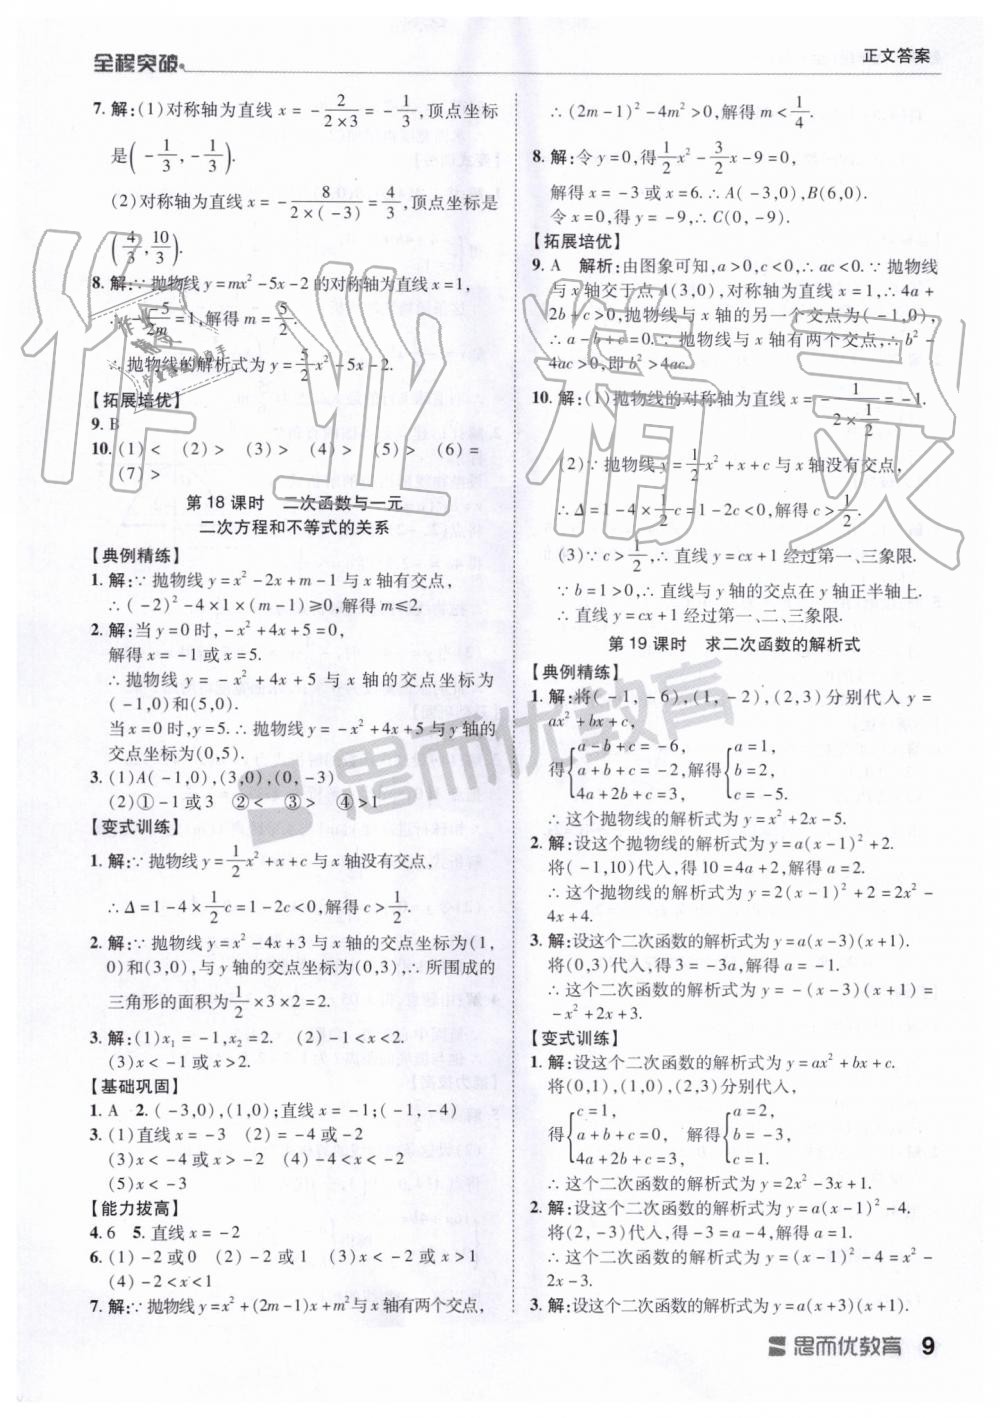 全程突破
正文答案
7. 解:(1)对称轴为直线 x = -2/(2×3) = -1/3,顶点坐标
是(-1/3, -1/3).
(2)对称轴为直线 x = -8/(2×(-3)) = 4/3,顶点坐标是
(4/3, 10/3).
8. 解:∵ 抛物线 y = mx² -5x -2 的对称轴为直线 x = 1,
∴ -(-5)/(2m) = 1,解得 m = 5/2.
∴ 抛物线的解析式为 y = 5/2 x² -5x -2.
【拓展培优】
9. B
10. (1) < (2) > (3) > (4) > (5) > (6) =
(7) >
第 18 课时 二次函数与一元
二次方程和不等式的关系
【典例精练】
1. 解:∵ 抛物线 y = x² -2x + m -1 与 x 轴有交点,
∴ (-2)² -4×1×(m-1)≥0,解得 m≤2.
2. 解:当 y = 0 时, -x² +4x +5 = 0,
解得 x = -1 或 x = 5.
∴ 抛物线 y = -x² +4x +5 与 x 轴的交点坐标为
(-1,0)和(5,0).
当 x = 0 时,y = 5. ∴ 抛物线 y = -x² +4x +5 与 y 轴的
交点坐标为(0,5).
3. (1)A(-1,0),(3,0),(0,-3)
(2)① -1 或 3 ② < ③ > ④ >1
【变式训练】
1. 解:∵ 抛物线 y = 1/2 x² + x + c 与 x 轴没有交点,
∴ Δ = 1 -4×1/2 c = 1 -2c <0,解得 c > 1/2.
2. 解:∵ 抛物线 y = x² -4x +3 与 x 轴的交点坐标为(1,
0)和(3,0),与 y 轴的交点坐标为(0,3),∴ 所围成的
三角形的面积为 1/2 ×3×2 = 2.
3. 解:(1)x₁ = -1,x₂ = 2. (2) -1 < x < 2.
(3)x < -1 或 x > 2.
【基础巩固】
1. A 2. (-3,0),(1,0);直线 x = -1;(-1,-4)
3. (1)直线 x = -3 (2) = -4 或 -2
(3)x < -4 或 x > -2 (4) -4 < x < -2
(5)x < -3
【能力拔高】
4. 6 5. 直线 x = -2
6. (1) -2 或 0 (2) -2 或 1 (3)x < -2 或 x > 1
(4) -2 < x < 1
7. 解:∵ 抛物线 y = x² +(2m-1)x + m² 与 x 轴有两个交点,
∴ (2m-1)² -4m² >0,解得 m < 1/4.
8. 解:令 y = 0,得 1/2 x² - 3/2 x -9 = 0,
解得 x = -3 或 x = 6. ∴ A(-3,0),B(6,0).
令 x = 0,得 y = -9,∴ C(0,-9).
【拓展培优】
9. A 解析:由图象可知,a > 0,c < 0,∴ ac < 0. ∵ 抛物线
与 x 轴交于点 A(3,0),对称轴为直线 x = 1,∴ 4a +
2b + c > 0;抛物线与 x 轴的另一个交点为(-1,0),
∴ a - b + c = 0. ∵ 抛物线与 x 轴有两个交点,∴ b² -
4ac > 0,即 b² > 4ac.
10. 解:(1)抛物线的对称轴为直线 x = -1/(2×1/2) = -1.
(2)∵ 抛物线 y = 1/2 x² + x + c 与 x 轴没有交点,
∴ Δ = 1 -4×1/2 c = 1 -2c <0,解得 c > 1/2.
(3)∵ c > 1/2,∴ 直线 y = cx +1 经过第一、三象限.
∵ b = 1 > 0,∴ 直线与 y 轴的交点在 y 轴正半轴上.
∴ 直线 y = cx +1 经过第一、二、三象限.
第 19 课时 求二次函数的解析式
【典例精练】
1. 解:将(-1,-6),(1,-2),(2,3)分别代入 y =
ax² + bx + c,
得{a - b + c = -6, a + b + c = -2, 4a + 2b + c = 3, 解得{a = 1, b = 2, c = -5.
∴ 这个抛物线的解析式为 y = x² +2x -5.
2. 解:设这个抛物线的解析式为 y = a(x-1)² +2.
将(-1,10)代入,得 10 = 4a +2,解得 a = 2.
∴ 这个抛物线的解析式为 y = 2(x-1)² +2 = 2x² -
4x +4.
3. 解:设这个二次函数的解析式为 y = a(x-3)(x+1).
将(0,3)代入,得 3 = -3a,解得 a = -1.
∴ 这个二次函数的解析式为 y = -(x-3)(x+1) =
-x² +2x +3.
【变式训练】
1. 解:设这个二次函数的解析式为 y = ax² + bx + c.
将(0,1),(1,0),(2,3)分别代入,
得{c = 1, a + b + c = 0, 4a + 2b + c = 3, 解得{a = 2, b = -3, c = 1.
∴ 这个二次函数的解析式为 y = 2x² -3x +1.
2. 解:设这个二次函数的解析式为 y = a(x-1)² -4.
将(2,-3)代入,得 -3 = a -4,解得 a = 1.
∴ 这个二次函数的解析式为 y = (x-1)² -4 = x² -
2x -3.
3. 解:设这个二次函数的解析式为 y = a(x+3)(x+1).
思而优教育 9
作业精灵
思而优教育